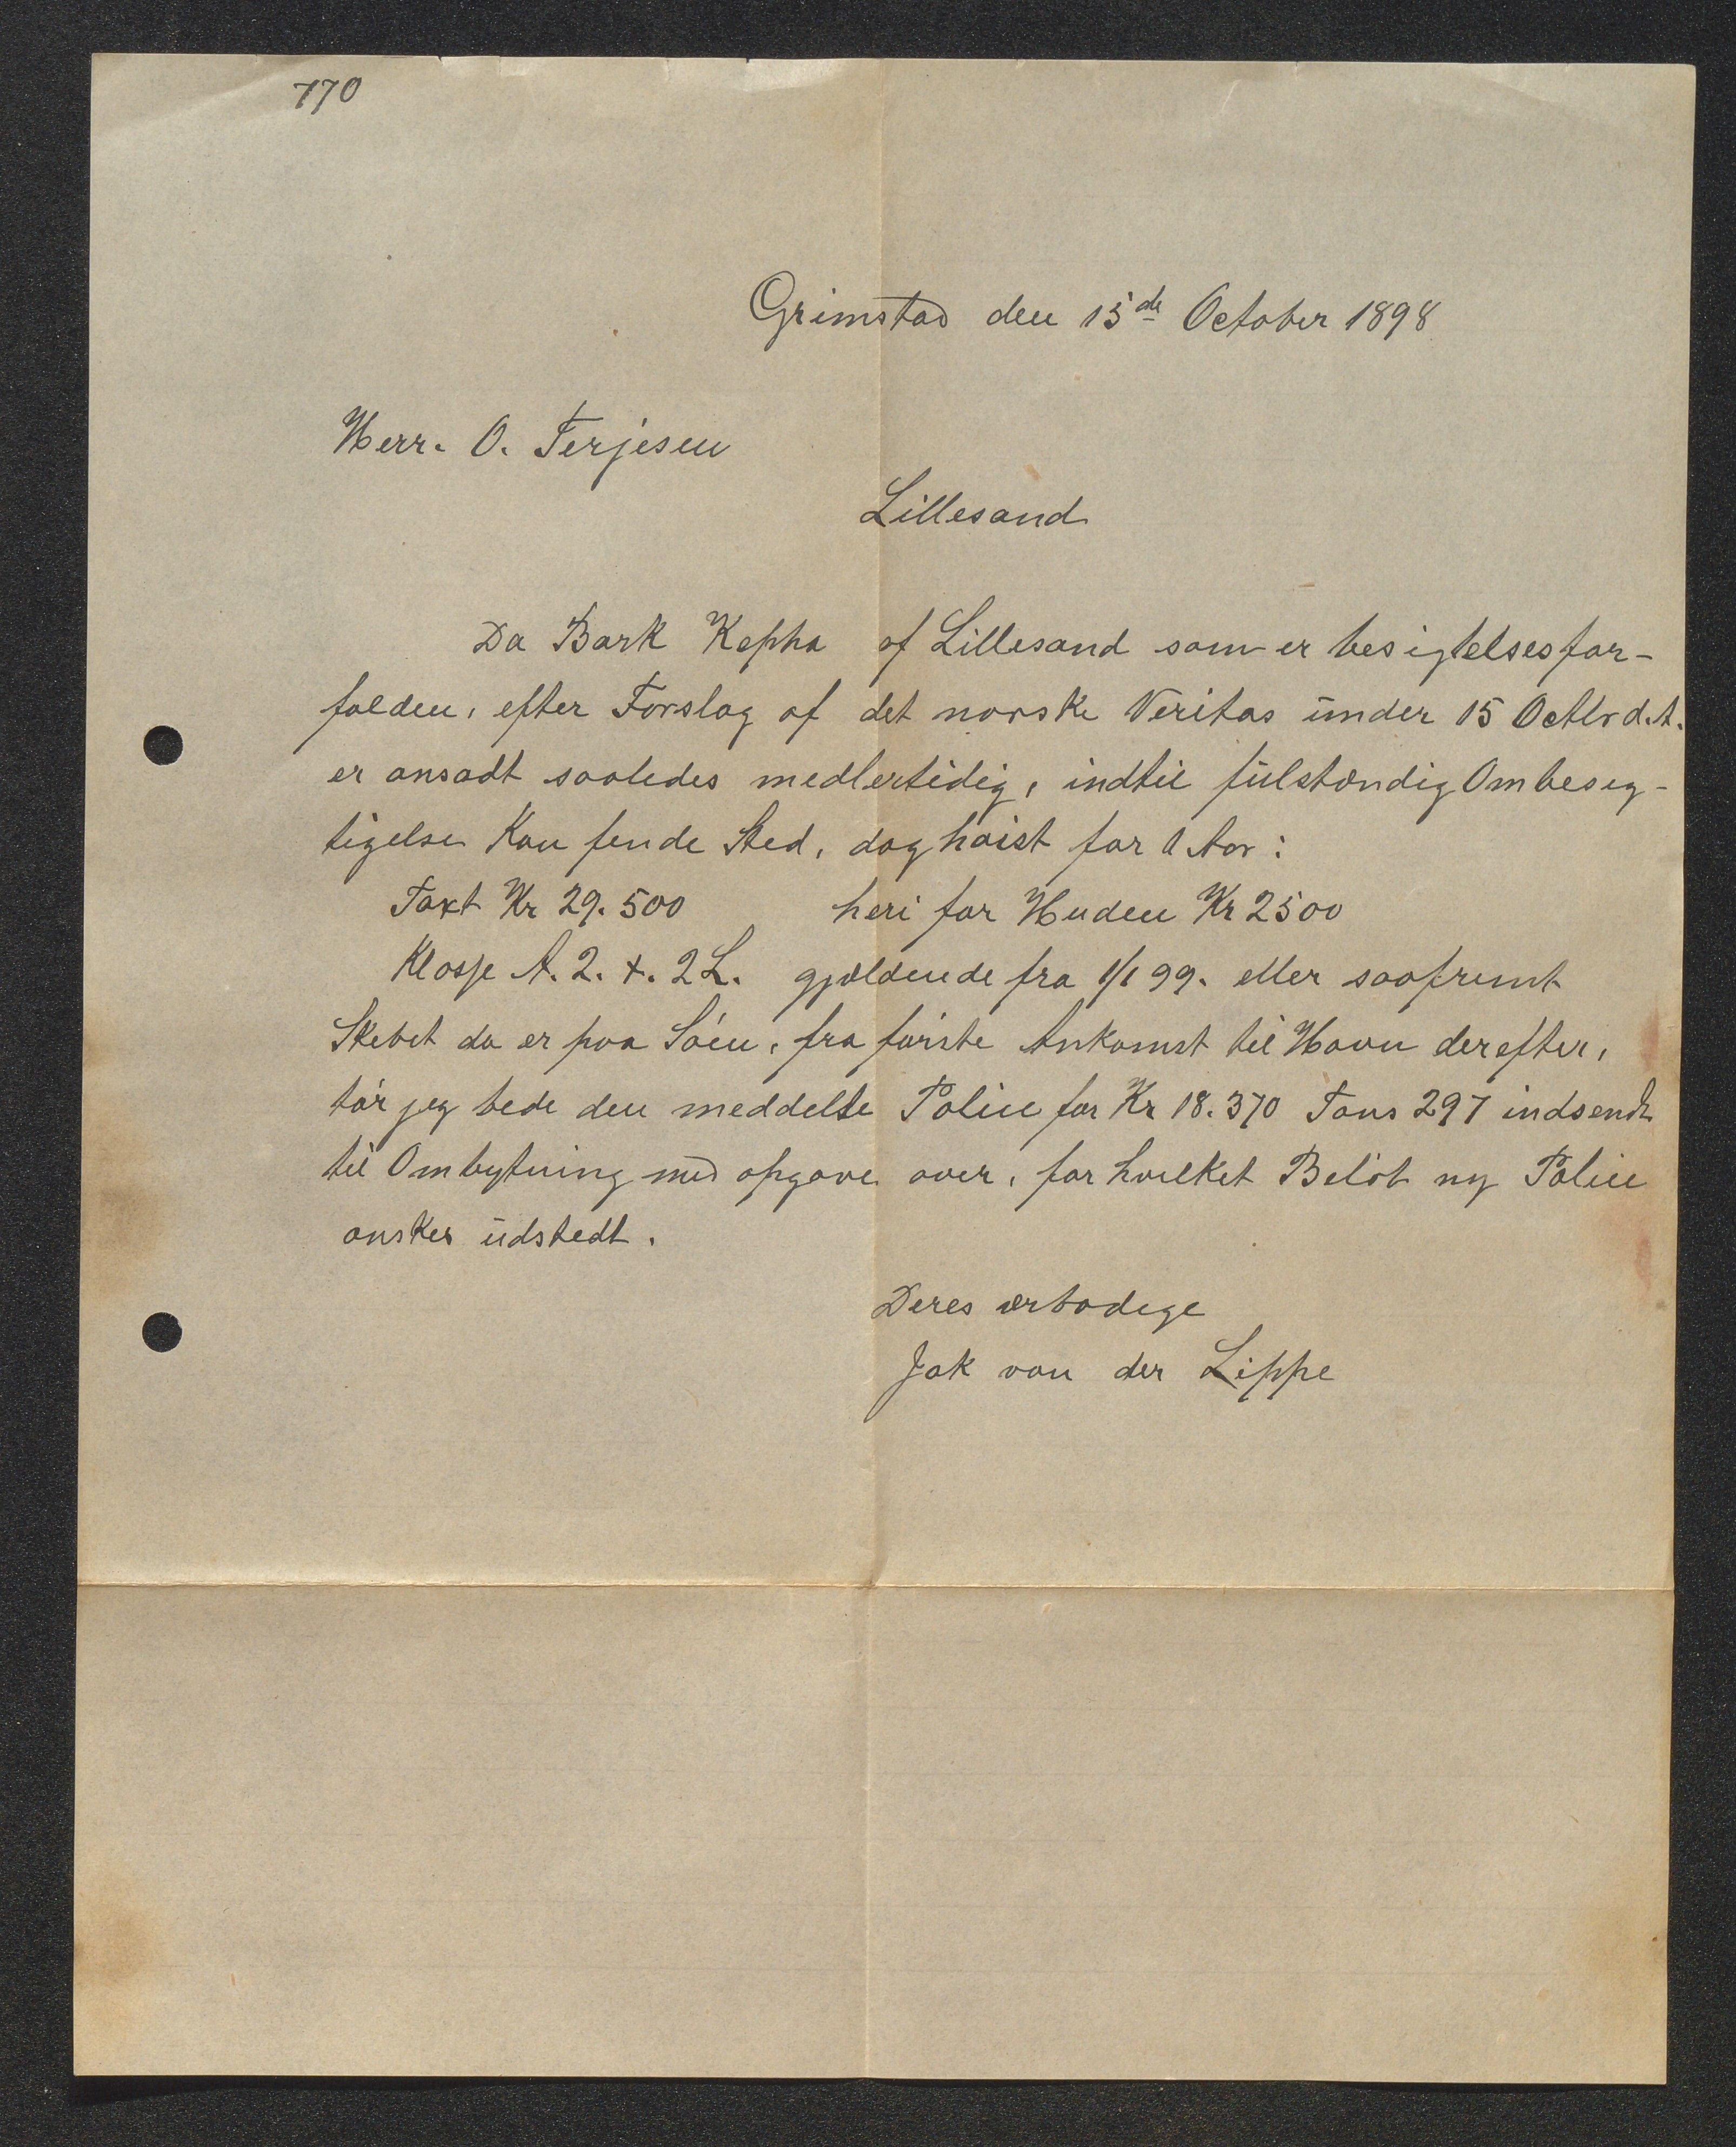 770
Grimstad den 15de October 1898
Herr. O. Terjesen
Lillesand
Da Bark Kepha af Lillesand som er besigtelsesfor-
falden, efter Forslag af det norske Veritas under 15 Octbr d.A.
er ansadt saaledes medlertidig, indtil fulstændig Ombesig-
tigelse Kan finde Sted, dog høist for 1 Aar:
Taxt Kr 29.500 heri for Huden Kr 2500
Klasse A. 2. +. 2 L. gjældende fra 1/1 99. eller saafremt
Skibet da er paa Søen, fra første Ankomst til Havn derefter,
tør jeg bede den meddelte Police for Kr 18.370 Tons 297 indsendt
til Ombytning med opgave over, for hvilket Beløb ny Police
ønskes udstedt.
Deres ærbødige
Jak von der Lippe